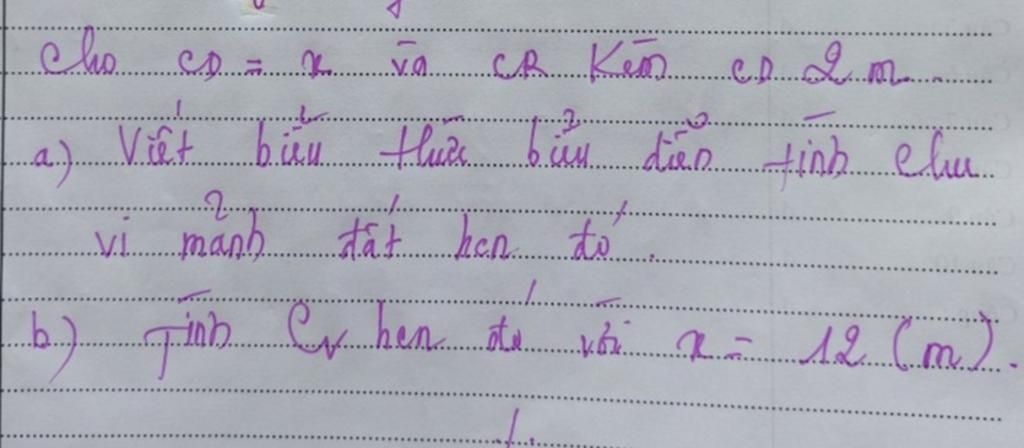 Cho CD = x và CR kém CD 2 m.
a) Viết biểu thức biểu diễn tính chu
vi mảnh đất hcn đó.
b) Tính Cv hcn đó với x = 12 (m).